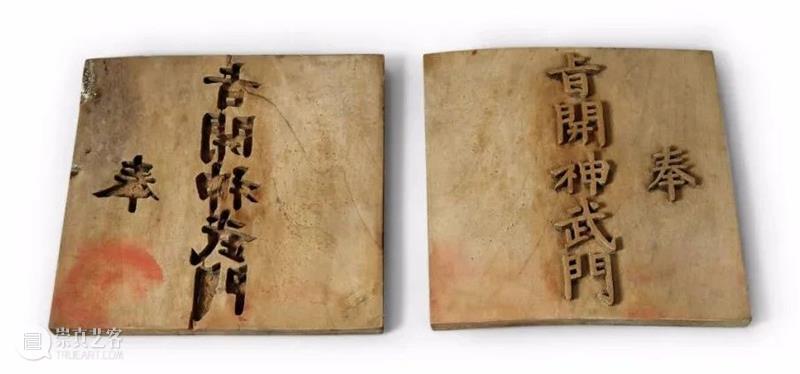 奉
旨開神武門
奉
旨開神武門
崇真艺客
TRUEART.COM